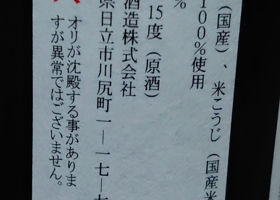 (国産)、米こうじ(国産米
100%使用
%
15度(原酒)
酒造株式会社
県日立市川尻町一ー一七ー七
オリが沈殿する事がありま
すが異常ではございません。